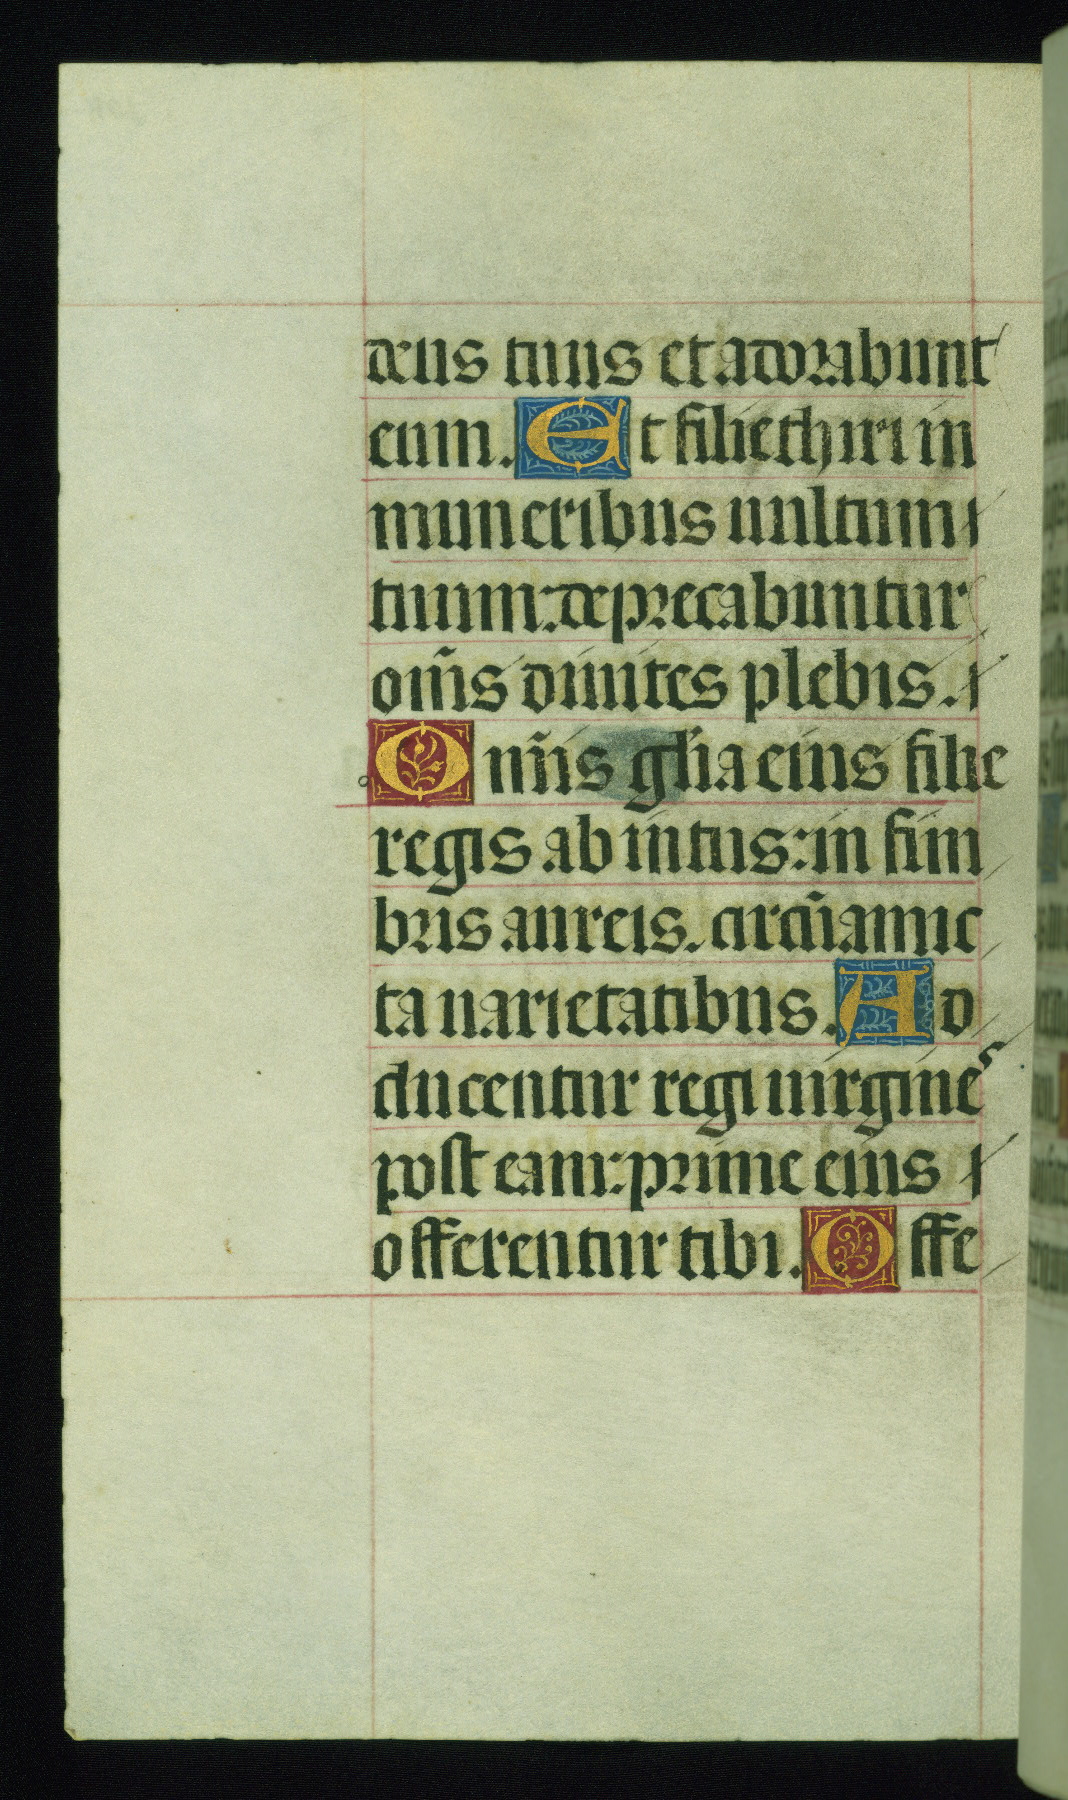 deus tuus et adorabunt
eum. Et filie thiri in
muneribus uultum
tuum: deprecabuntur
om̄s diuites plebis.
Omīs gl̄ia eius filie
regis ab intus: in fim
bris aureis. circūamic
ta uarietatibus. Ad
ducentur regi uirgines
post eam: prime eius
offerentur tibi. Offe